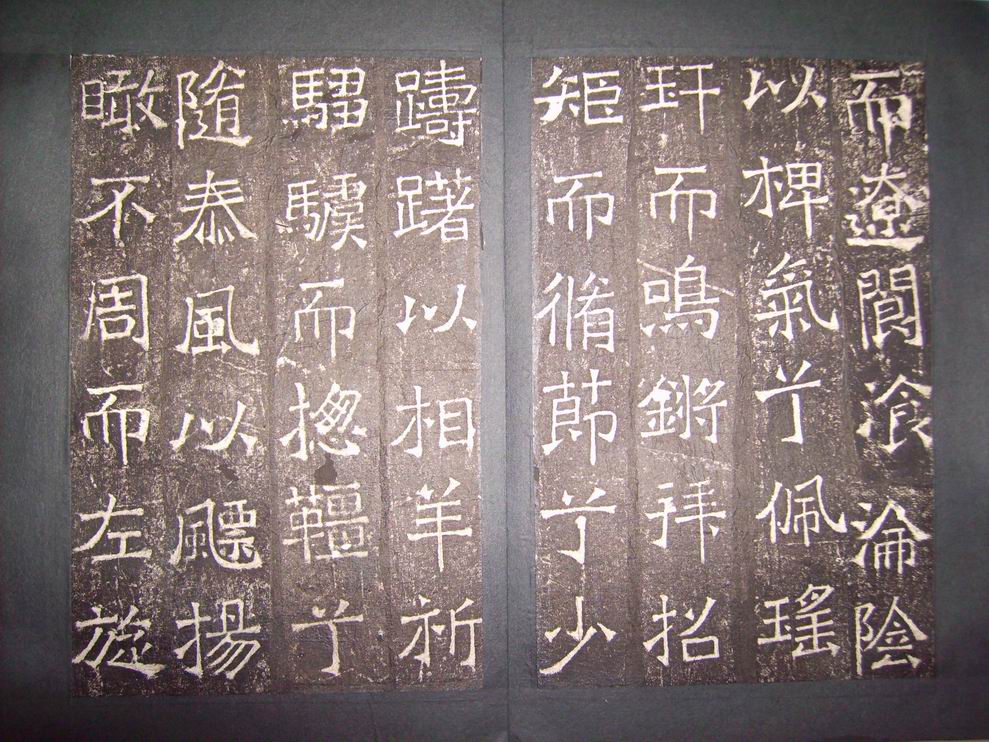 而遼閬湌淪陰
以椑氣兮佩瑤
玕而鳴鏘拜招
矩而脩莭兮少
躊躇以相羊祈
騮驥而摠韁兮
隨泰風以飃揚
瞰不周而左旋